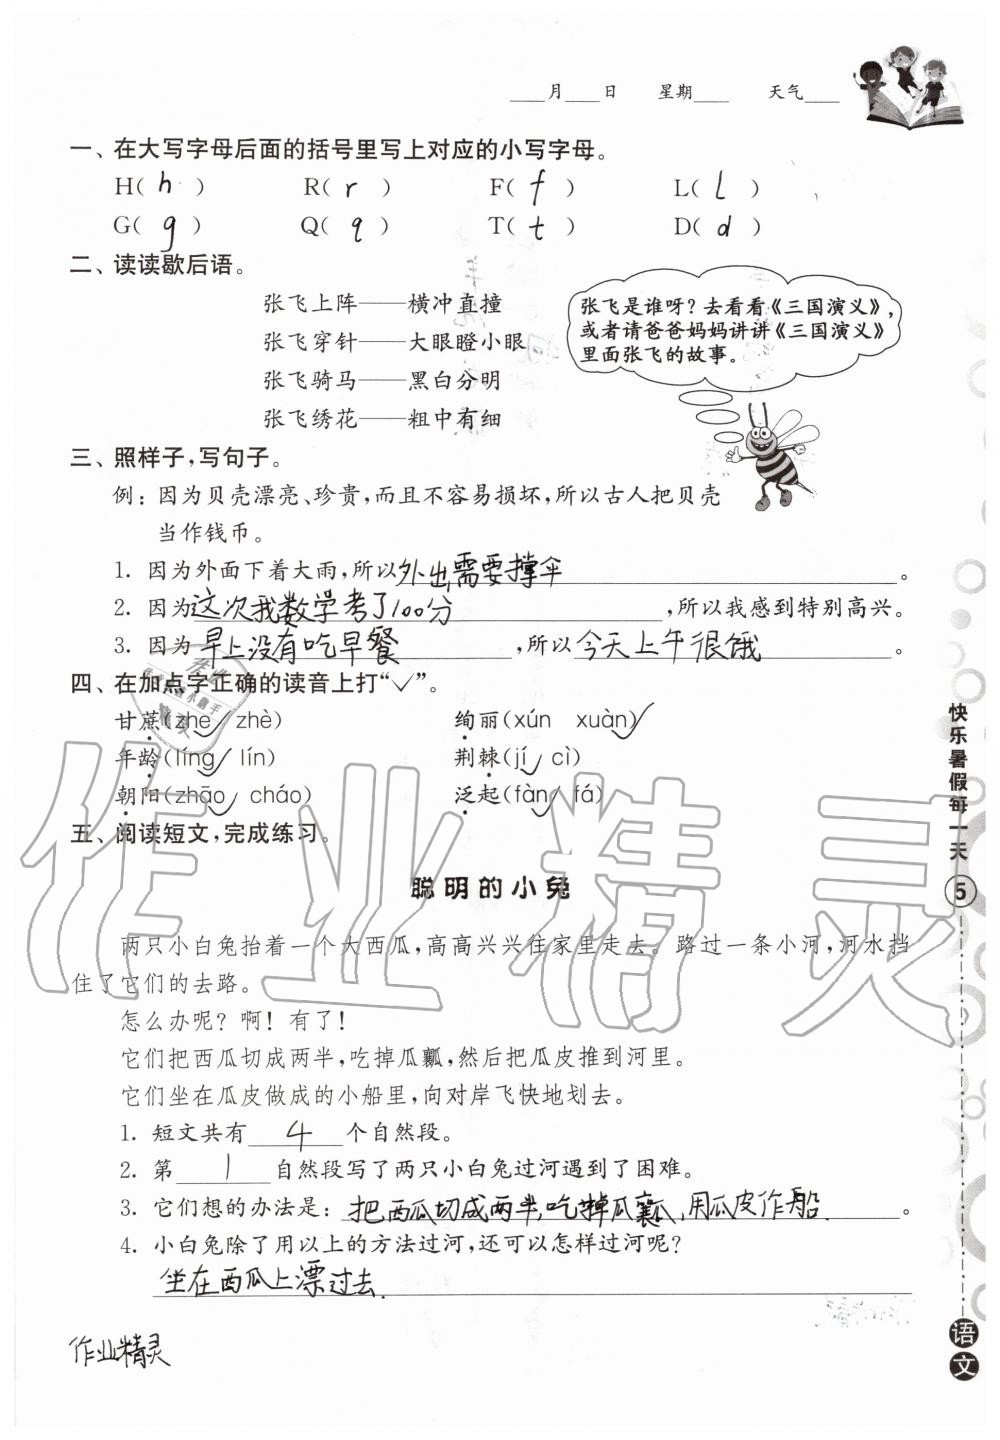 ____月____日 星期____ 天气____
一、在大写字母后面的括号里写上对应的小写字母。
H( h ) R( r ) F( f ) L( l )
G( g ) Q( q ) T( t ) D( d )
二、读读歇后语。
张飞上阵——横冲直撞
张飞穿针——大眼瞪小眼
张飞骑马——黑白分明
张飞绣花——粗中有细
张飞是谁呀?去看看《三国演义》,
或者请爸爸妈妈讲讲《三国演义》
里面张飞的故事。
三、照样子,写句子。
例:因为贝壳漂亮、珍贵,而且不容易损坏,所以古人把贝壳
当作钱币。
1. 因为外面下着大雨,所以外出需要撑伞。
2. 因为这次我数学考了100分,所以我感到特别高兴。
3. 因为早上没有吃早餐,所以今天上午很饿。
四、在加点字正确的读音上打“✓”。
甘蔗(zhe✓ zhè) 绚丽(xún xuàn✓)
年龄(líng✓ lín) 荆棘(jí✓ cì)
朝阳(zhāo✓ cháo) 泛起(fàn✓ fá)
五、阅读短文,完成练习。
聪明的小兔
两只小白兔抬着一个大西瓜,高高兴兴往家里走去。路过一条小河,河水挡
住了它们的去路。
怎么办呢?啊!有了!
它们把西瓜切成两半,吃掉瓜瓤,然后把瓜皮推到河里。
它们坐在瓜皮做成的小船里,向对岸飞快地划去。
1. 短文共有 4 个自然段。
2. 第 1 自然段写了两只小白兔过河遇到了困难。
3. 它们想的办法是:把西瓜切成两半,吃掉瓜瓤,用瓜皮作船.。
4. 小白兔除了用以上的方法过河,还可以怎样过河呢?
坐在西瓜上漂过去.
作业精灵
快乐暑假每一天
5
语文
作业精灵